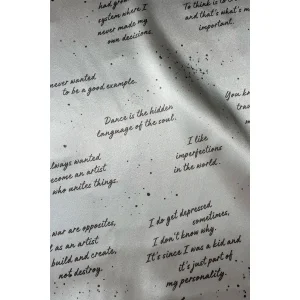 had grow
system where I
never made my
own decisions.
To think is to cr
and that's what's m
important.
never wanted
to be a good example.
Dance is the hidden
language of the soul.
You kno
I like
imperfections
in the world.
lways wanted
ecome an artist
who unites things.
war are opposites,
t as an artist
build and create,
not destroy.
I do get depressed
sometimes,
I don't know why.
It's since I was a kid and
it's just part of
my personality.